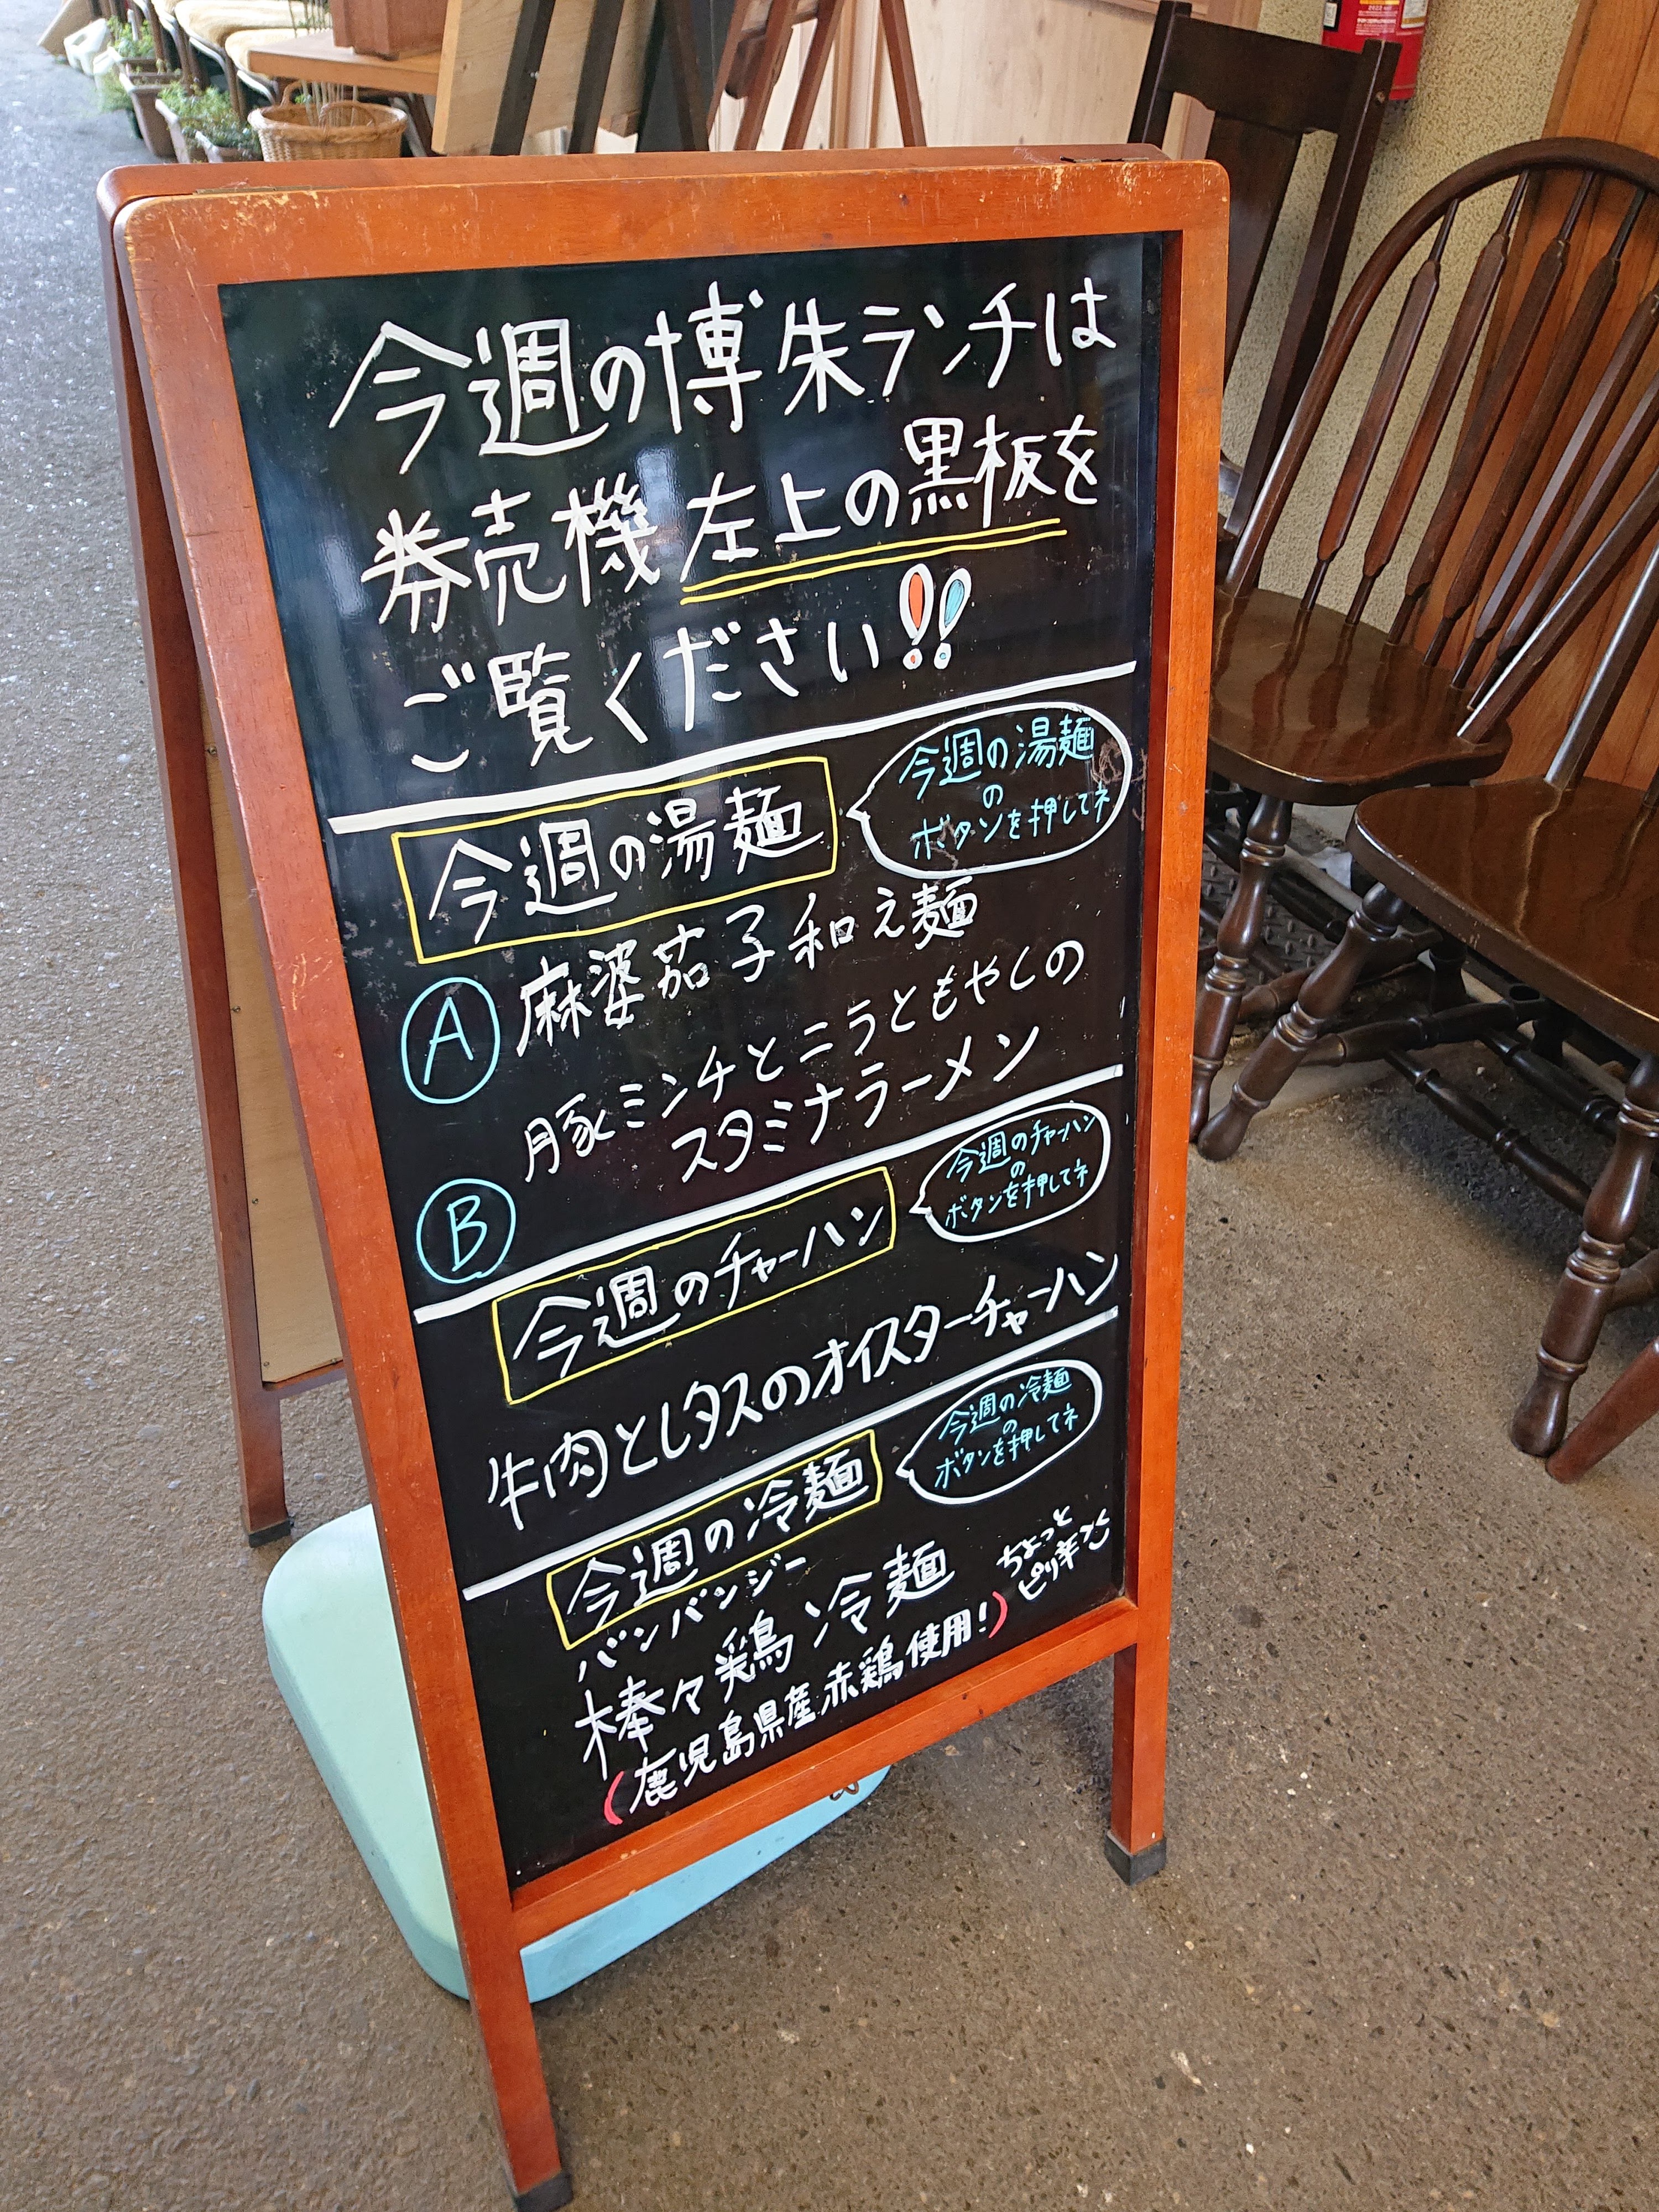 今週の博朱ランチは
券売機左上の黒板を
ご覧ください!!
今週の湯麺
今週の湯麺
の
ボタンを押してネ
A 麻婆茄子和え麺
豚ミンチとニラともやしの
B スタミナラーメン
今週のチャーハン
今週のチャーハン
の
ボタンを押してネ
牛肉とレタスのオイスターチャーハン
今週の冷麺
今週の冷麺
の
ボタンを押してネ
バンバンジー
棒々鶏 冷麺
ちょっと
ピリ辛
(鹿児島県産赤鶏使用!)